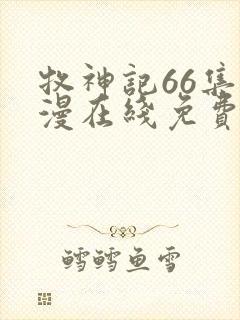 牧神記66集
漫在綫免費
鱈鱈鱼雪